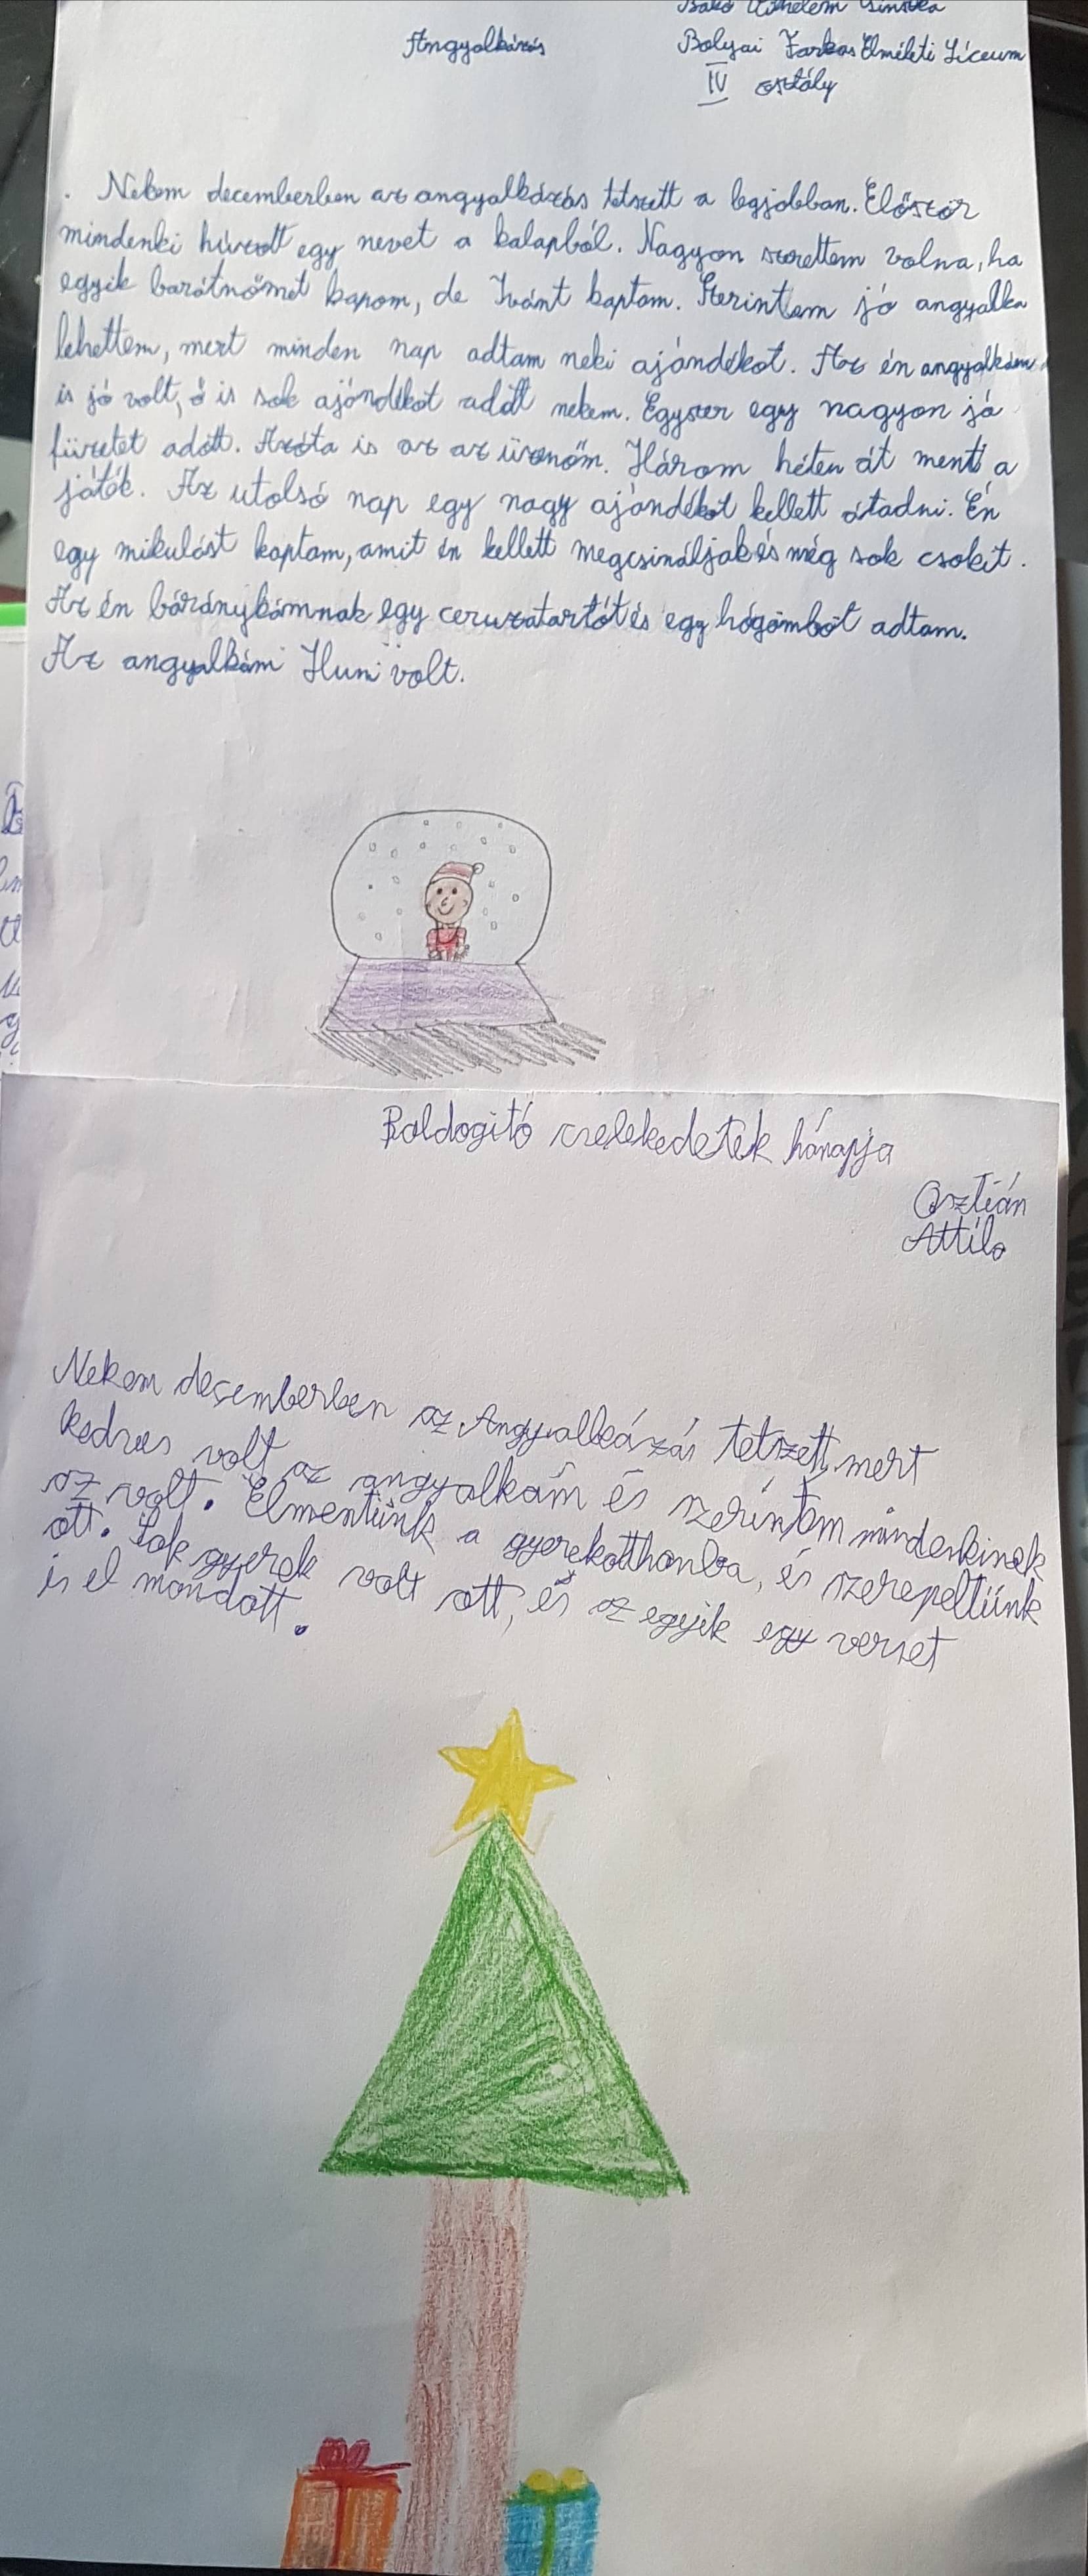 Angyalkázás
Bolyai Farkas Elméleti Líceum
IV osztály
Nekem decemberben az angyalkázás tetszett a legjobban. Először
mindenki húzott egy nevet a kalapból. Nagyon szerettem volna, ha
egyik barátnőmet kapom, de Ivánt kaptam. Szerintem jó angyalka
lehettem, mert minden nap adtam neki ajándékot. Az én angyalkám
is jó volt, ő is sok ajándékot adott nekem. Egyszer egy nagyon jó
füzetet adott. Azóta is az az üzenőm. Három héten át ment a
játék. Az utolsó nap egy nagy ajándékot kellett átadni. Én
egy mikulást kaptam, amit én kellett megcsináljak és még sok csokit.
Az én báránykámnak egy ceruzatartót és egy hógömböt adtam.
Az angyalkám Huni volt.
Boldogító cselekedetek hónapja
Osztián
Attila
Nekem decemberben az Angyalkázás tetszett, mert
kedves volt az angyalkám és szerintem mindenkinek
az volt. Elmentünk a gyerekotthonba, és szerepeltünk
ott. Sok gyerek volt ott, és az egyik egy verset
is el mondott.